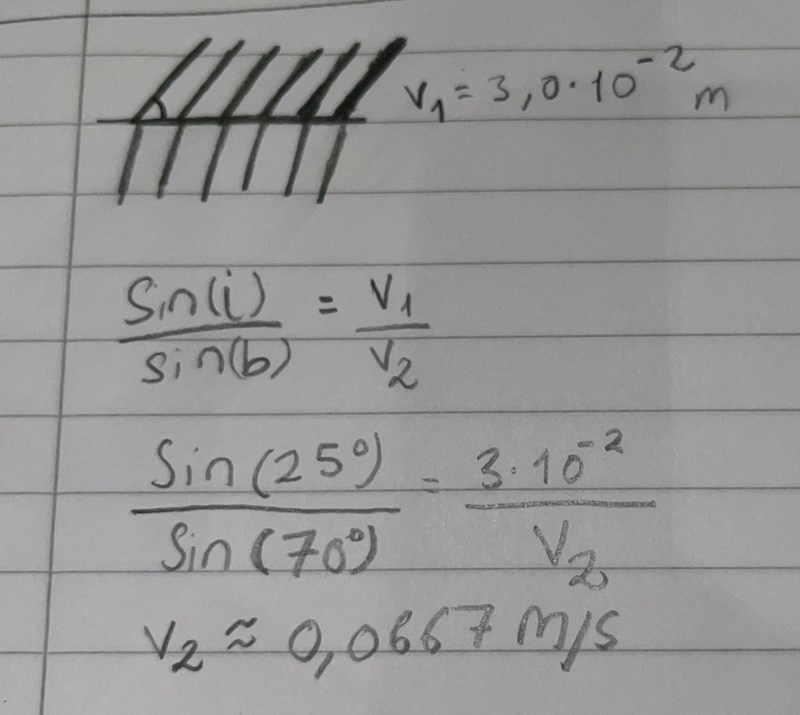 v₁ = 3,0·10⁻² m
Sin(i) / sin(b) = v₁ / v₂
Sin(25°) / Sin(70°) = 3·10⁻² / v₂
v₂ ≈ 0,0667 m/s